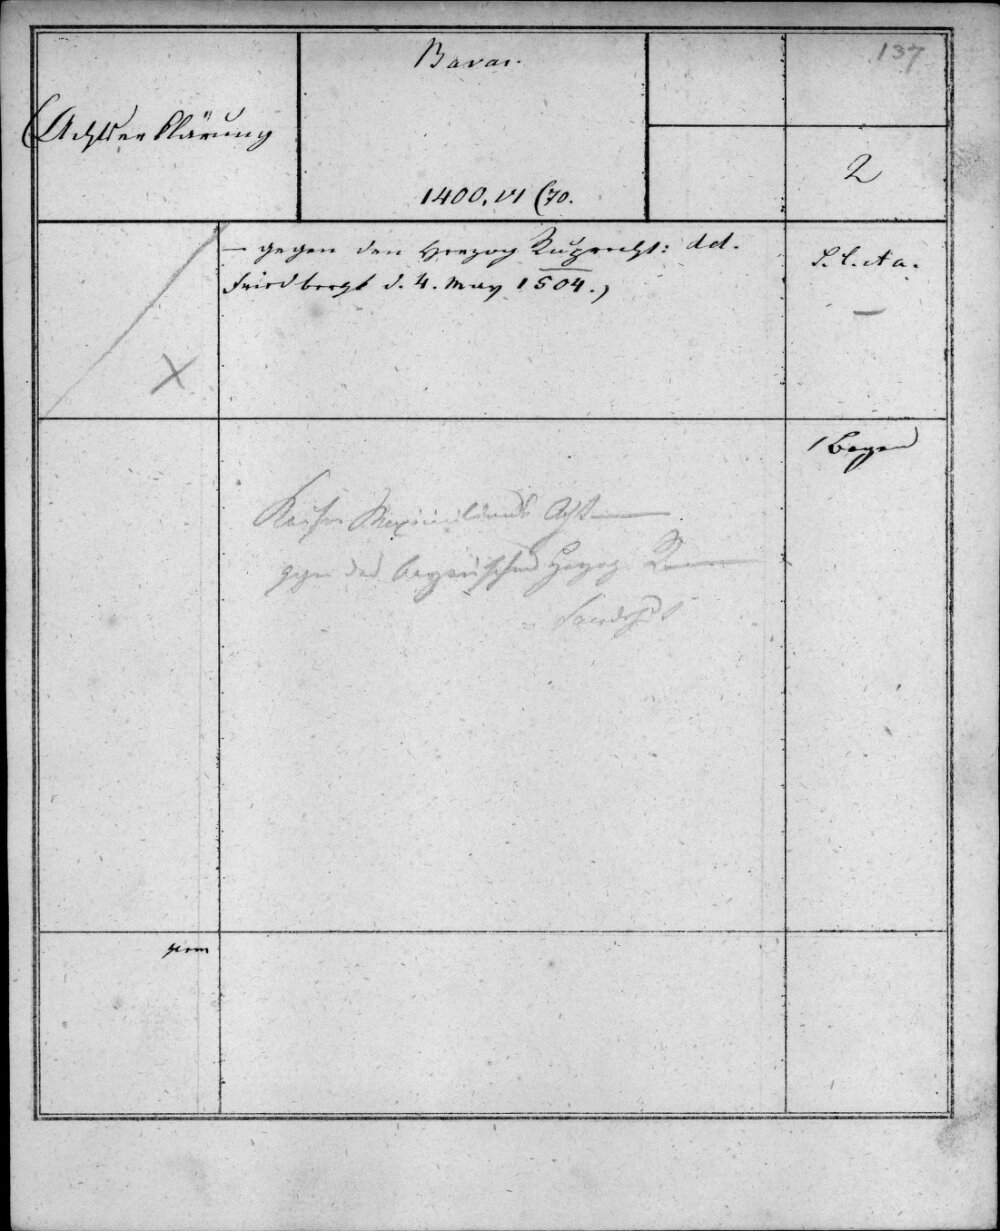 137
Bavar.
(Achtserklärung
2
1400, VI (70.
– gegen den Herzog Ruprecht: dd.
Friedbergk d. 4. May 1504.)
S. l. et a.
–
X
1 Bogen
Kaiser Maximilians Acht
gegen den bayerischen Herzog R
Landshut
germ